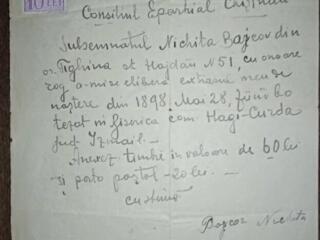 10 LEI
Consiliul Eparhial Chișinău
Subsemnatul Nichita Bajcov din
or. Tighina st Hajdău N 51, cu onoare
rog a-mi se elibera extrasul meu de
naștere din 1898, Mai 28, fiind bo
tezat în biserica com. Hagi-Curda
jud. Izmail. —
Anexez timbre in valoare de 60 lei
și porto poștal - 20 lei. —
cu stimă
Bajcov Nichita